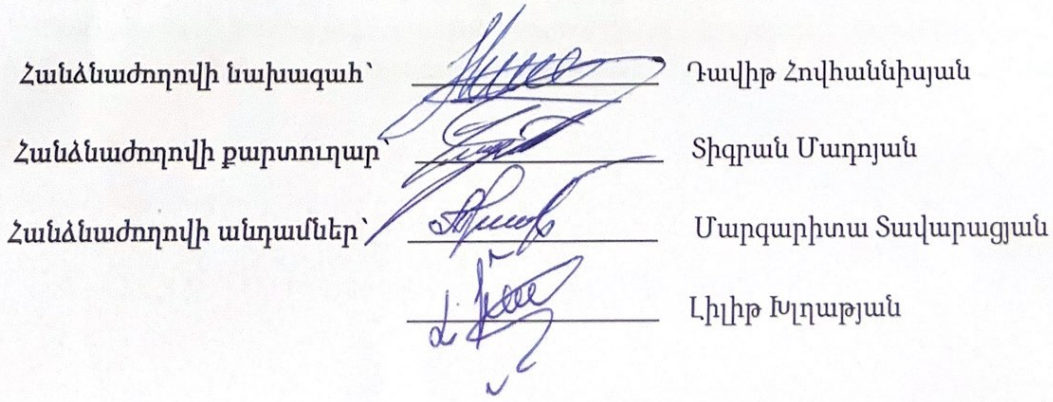 Հանձնաժողովի նախագահ՝ Դավիթ Հովհաննիսյան
Հանձնաժողովի քարտուղար՝ Տիգրան Մադոյան
Հանձնաժողովի անդամներ՝ Մարգարիտա Տավարացյան
Լիլիթ Խլղաթյան